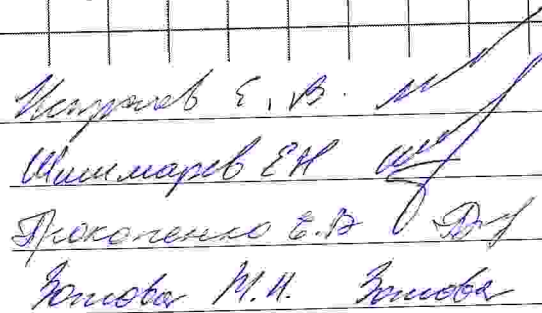 Е. В.
Шишмарев ЕН
Прокопенко Е.В
Зотова М.Н. Зотова